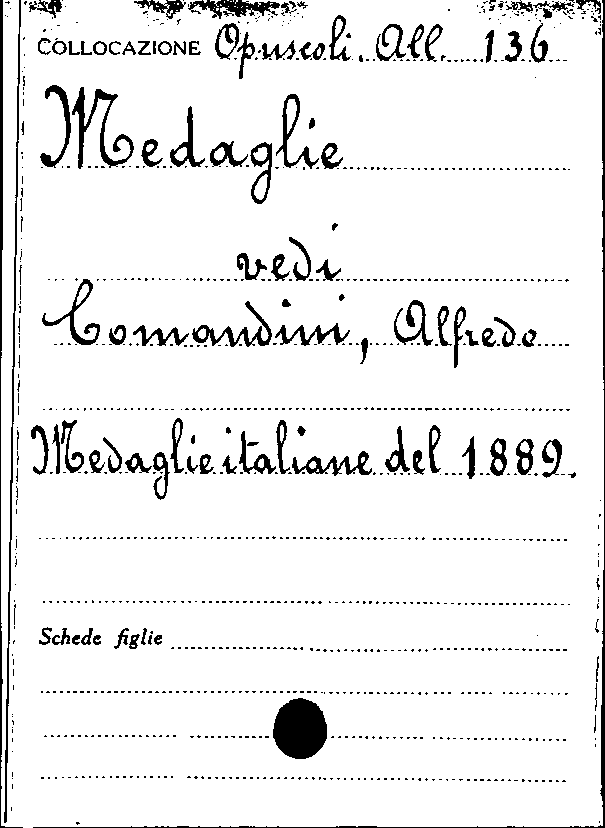 COLLOCAZIONE Opuscoli. All. 136
Medaglie
vedi
Comandini, Alfredo
Medaglie italiane del 1889.
Schede figlie